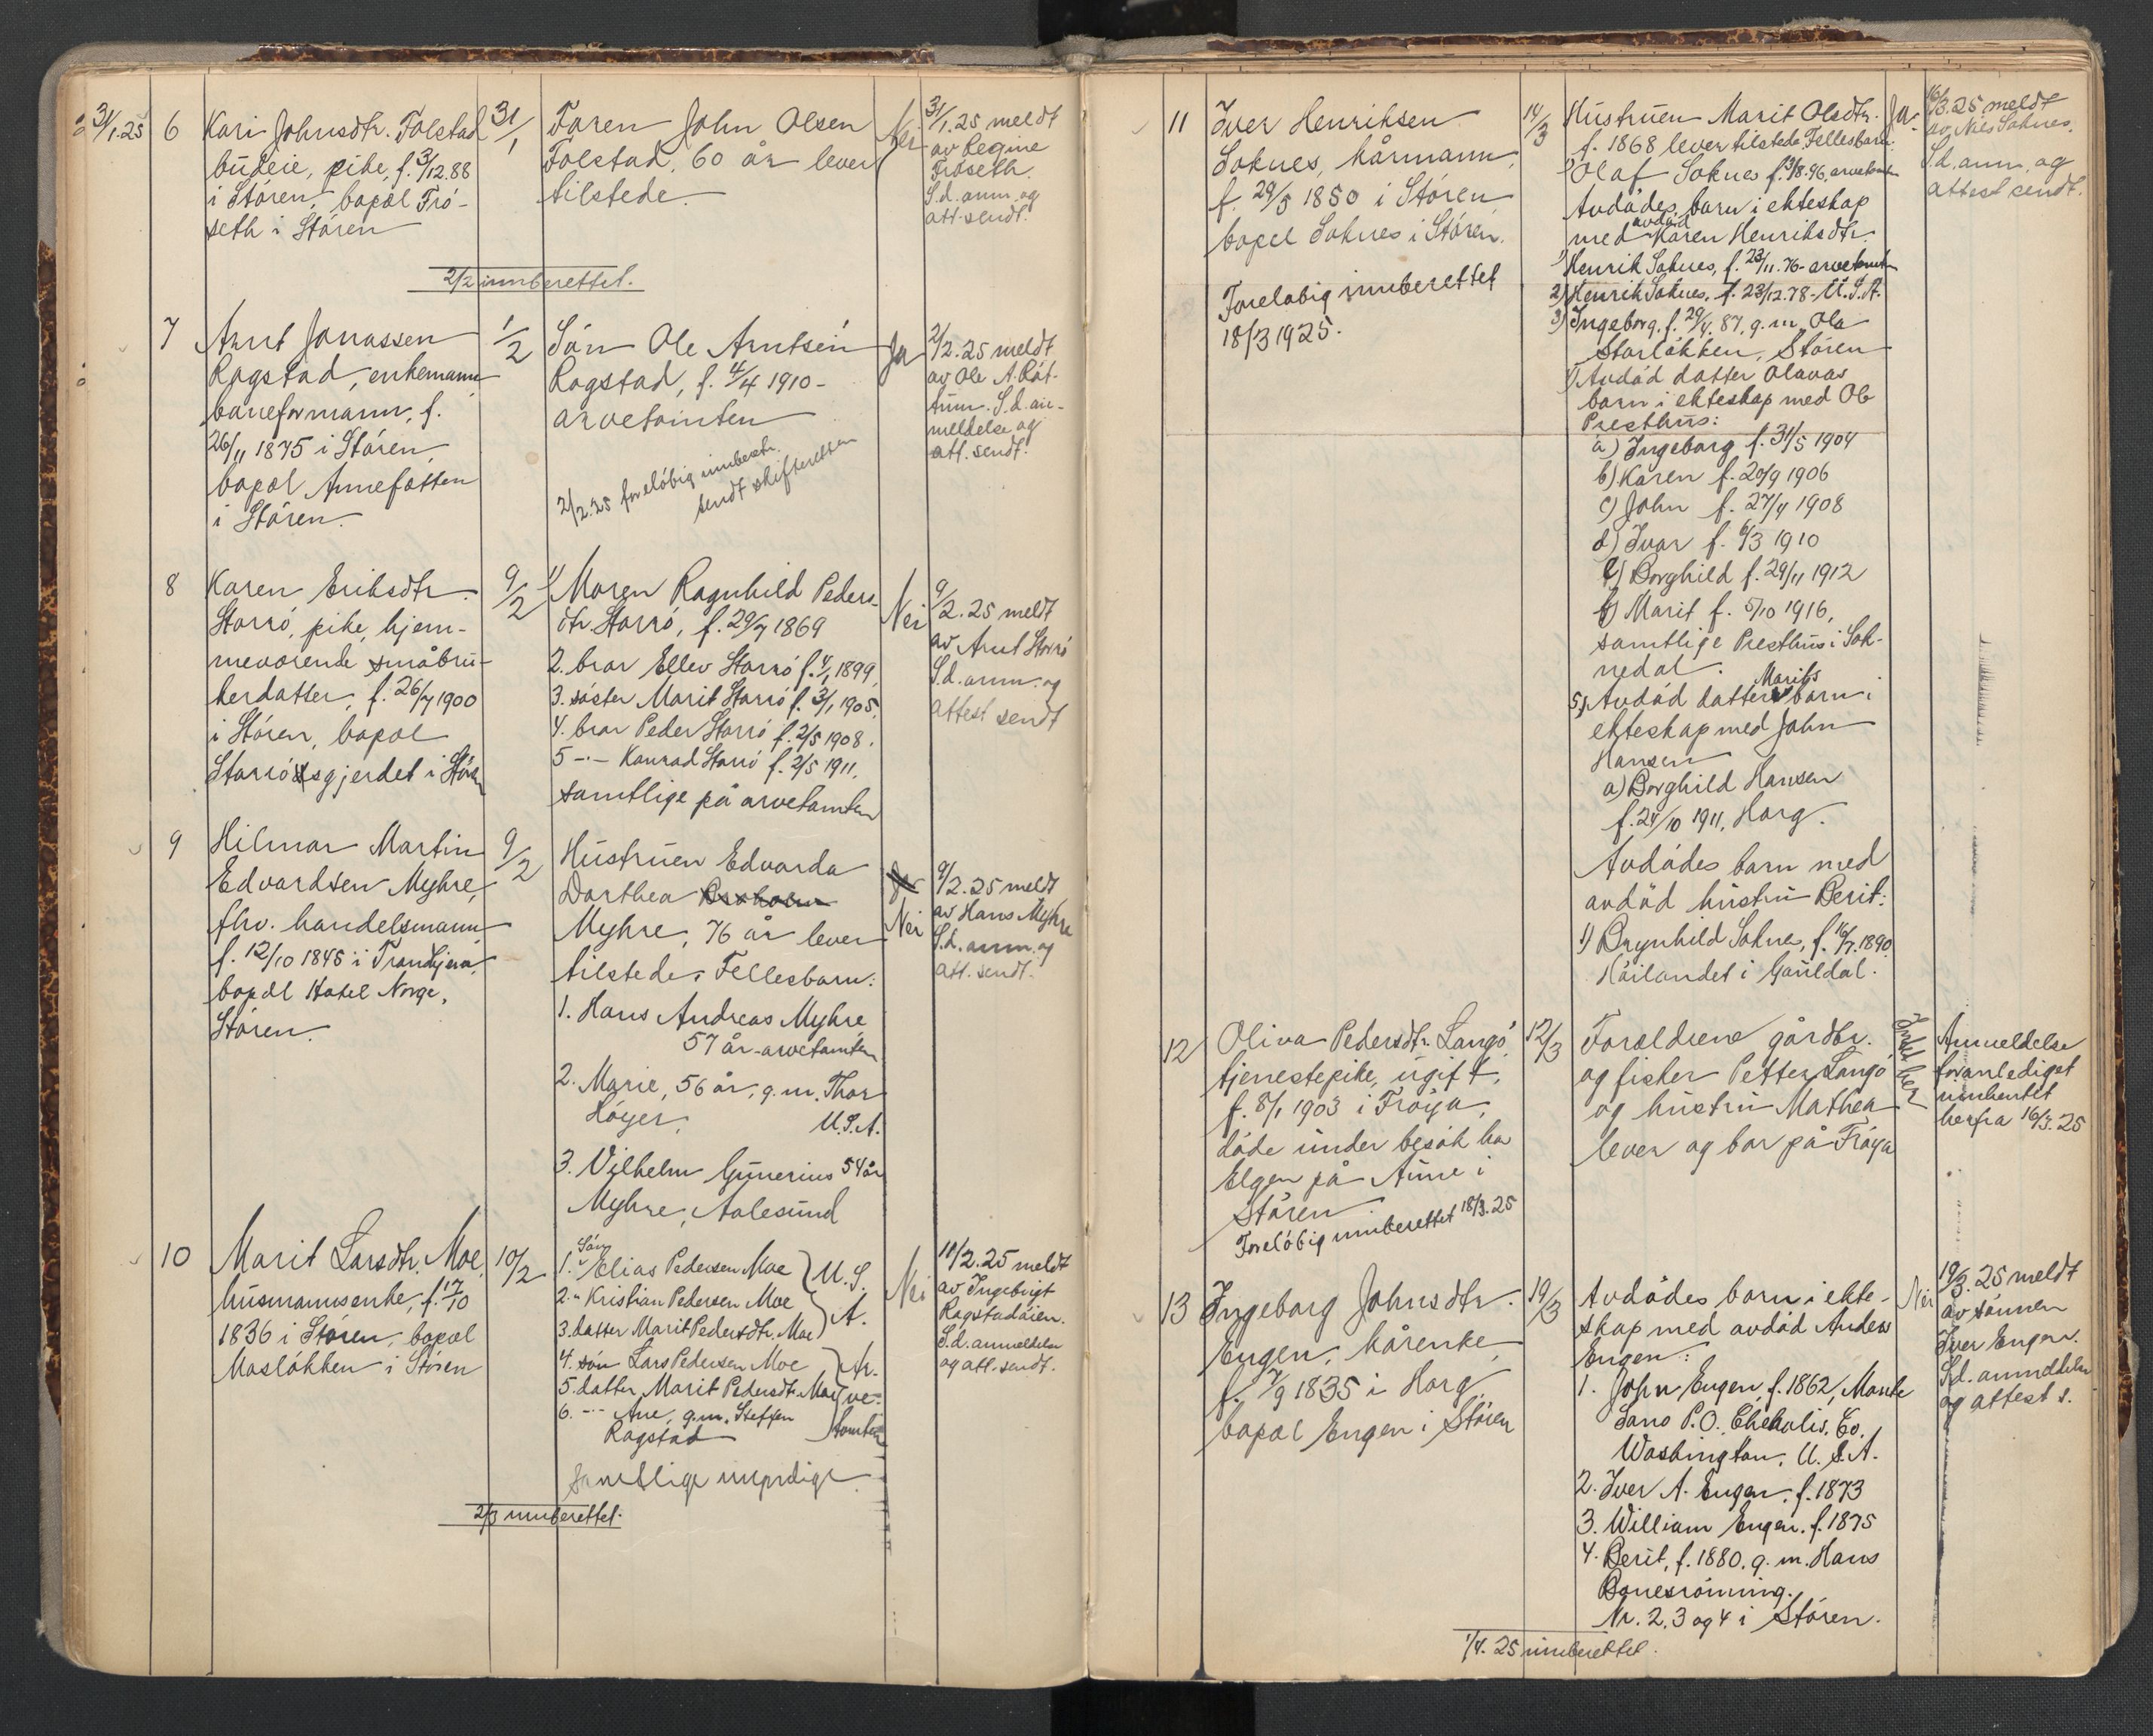 31/1.25 6 Kari Johnsdtr. Folstad
budeie, pike, f. 3/12.88
i Stören, bopæl Frö-
seth i Stören
31/1
Faren John Olsen
Folstad, 60 år lever
tilstede.
Nei
31/1.25 meldt
av Regine
Fröseth.
S.d. anm. og
att. sendt.
2/2 innberettet.
7 Arnt Jonassen
Rogstad, enkemann
baneformann, f.
26/11 1875 i Stören,
bopæl
i Stören.
1/2
Sön Ole Arntsen
Rogstad, f. 4/4 1910-
arvetomten
2/2.25 foreløbig innberetn.
sendt skifteretten
Ja
2/2.25 meldt
av Ole A. Rôt-
tum. S.d. an-
meldelse og
att. sendt.
8 Karen Eriksdtr.
Storrö, pike, hjem-
meværende småbru-
kerdatter, f. 26/7 1900
i Stören, bopæl
Storrösgjerdet i Stören
9/2
1) Moren Ragnhild Peders-
dtr. Storrö, f. 29/7 1869
2. bror Ellev Storrö f. 4/1 1899,
3. söster Marit Storrö f. 3/1 1905,
4. bror Peder Storrö f. 2/5 1908.
5 -..- Konrad Storrö f. 2/5 1911.
samtlige på arvetomten
Nei
9/2.25 meldt
av Arnt Storrö
S.d. anm. og
attest sendt
9 Hilmar Martin
Edvardsen Myhre,
fhv. handelsmann
f. 12/10 1848 i Trondhjem,
bopæl Hotel Norge,
Stören.
9/2
Hustruen Edvarda
Dorthea
Myhre, 76 år lever
tilstede. Fellesbarn:
1. Hans Andreas Myhre
57 år - arvetomten
2. Marie, 56 år, g.m. Thor
Löyer, U.S.A.
3. Vilhelm Gunerius 54 år
Myhre, Aalesund
Ja
Nei
9/2.25 meldt
av Hans Myhre
S.d. anm. og
att. sendt.
10 Marit Larsdtr. Moe,
husmannsenke, f. 17/10
1836 i Stören, bopæl
Moslökken i Stören
10/2
Sön
1. Elias Pedersen Moe } U.S.
2. " Kristian Pedersen Moe } A.
3. datter Marit Pedersdtr. Moe
4. sön Lars Pedersen Moe } Ar-
5. datter Marit Pedersdtr. Moe } ve-
6. -..- Ane, g.m. Steffen } tomten
Rogstad
samtlige myndige
Nei
10/2.25 meldt
av Ingebrigt
Rogstadöien.
S.d. anmeldelse
og att. sendt.
2/3 innberettet.
11 Iver Henriksen
Soknes, kårmann,
f. 29/5 1850 i Stören
bopel Soknes i Stören.
Foreløbig innberettet
18/3 1925.
14/3
Hustruen Marit Olsdtr.
f. 1868 lever tilstede. Fellesbarn:
1) Olaf Soknes f. 9/8.96, arvetomten
Avdödes barn i ekteskap
med avdöd Karen Henriksdtr.
1) Henrik Soknes, f. 23/11.76 - arvetomten
2) Henrik Soknes, f. 23/12.78 - U.S.A.
3) Ingeborg, f. 29/4.87, g.m. Ola
Storlökken, Stören
4) Avdöd datter Olavas
barn i ekteskap med Ole
Presthus:
a) Ingeborg f. 31/5 1904
b) Karen f. 20/9 1906
c) John f. 27/4 1908
d) Ivar f. 6/3 1910
e) Borghild f. 29/11 1912
f) Marit f. 5/10 1916,
samtlige Presthus i Sok-
nedal.
5) Avdöd datter Marits barn i
ekteskap med John
Hansen
a) Borghild Hansen
f. 24/10 1911, Horg.
Avdödes barn med
avdöd hustru Berit:
1) Brynhild Soknes, f. 16/7.1890
Höilandet i Gauldal.
Ja.
16/3.25 meldt
av Nils Soknes.
S.d. anm. og
attest sendt.
12 Oliva Pedersdtr. Langö,
tjenestepike, ugift,
f. 8/1 1903 i Fröya,
döde under besök hos
Elgen på Aune i
Stören
Foreløbig innberettet 18/3.25
12/3
Foreldrene gårdbr.
og fisker Petter Langö
og hustru Mathea
lever og bor på Fröya
Anmeldelse
foranlediget
innhentet
herfra 16/3.25
13 Ingeborg Johnsdtr.
Engen, kårenke,
f. 7/9 1835 i Horg,
bopæl Engen i Stören
19/3
Avdödes barn i ekte-
skap med avdöd Anders
Engen:
1. John Engen, f. 1862, Monte
Sano P.O. Chehalis, Co.
Washington, U.S.A.
2. Iver A. Engen, f. 1873
3. William Engen, f. 1875
4. Berit, f. 1880, g.m. Hans
Bonesrönning.
Nr. 2, 3 og 4 i Stören.
Nei
19/3.25 meldt
av sönnen
Iver Engen.
S.d. anmeldelse
og attest s.
1/4.25 innberettet.